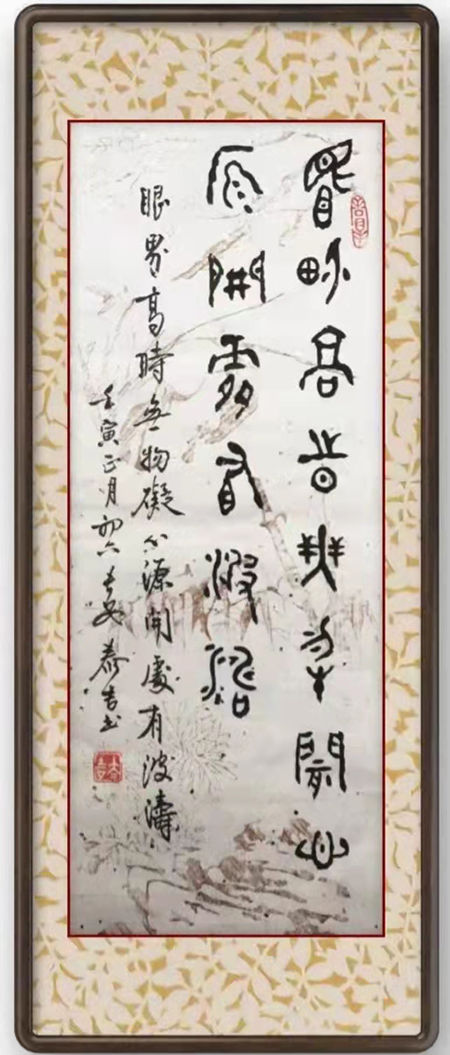 眼界高時無物礙心
源開處有波濤
眼界高時無物礙心源開處有波濤
壬寅正月初六長安泰吉书